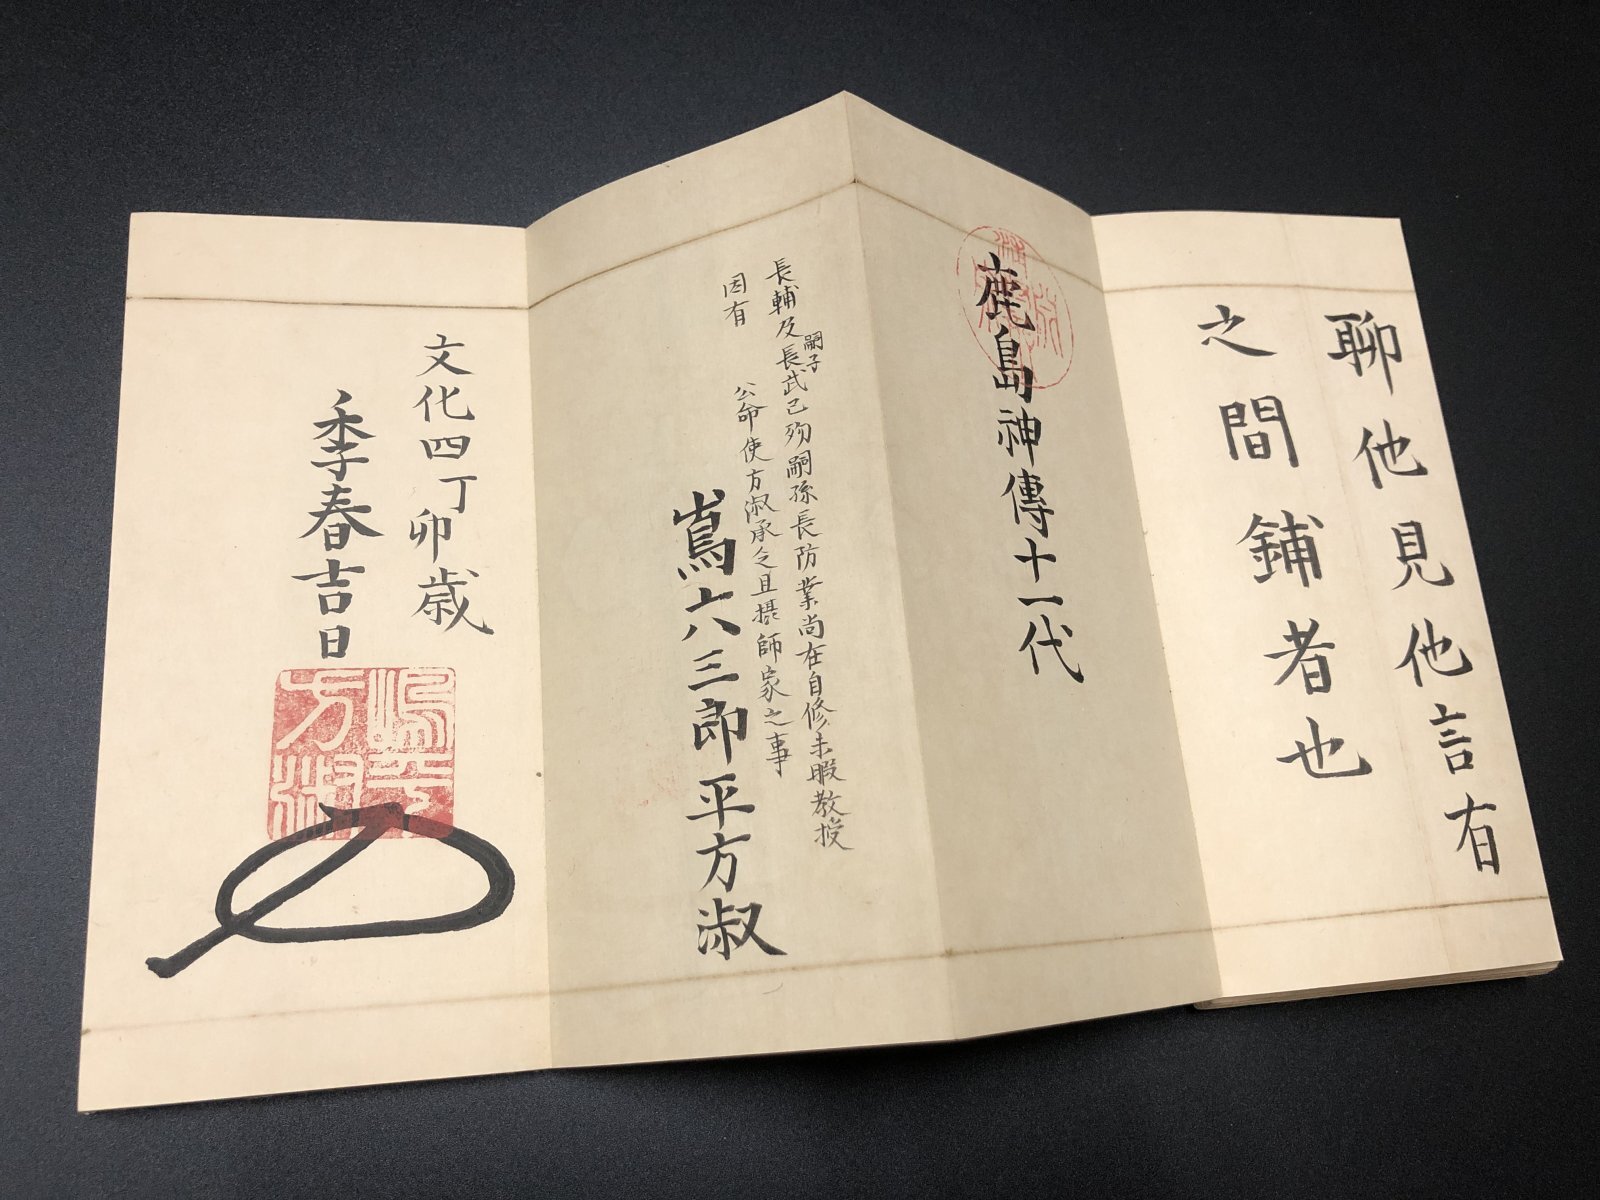 聊他見他言有
之間鋪者也
鹿島神傳十一代
長輔及嗣子長武已歿嗣孫長防業尚在自修未暇教授
因有　公命使方淑承之且摂師家之事
嶌六三郎平方淑
文化四丁卯歳
季春吉日
嶋平方淑